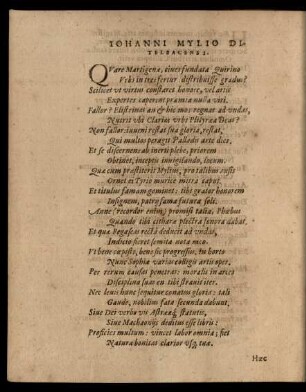 IOHANNI MYLIO DI-
QVare Martigenæ, ciues fundata Quirino
Vrbi in distribuisse gradus?
Scilicet vt virtus constaret honore, vel artis
Expertes caperent præmia nulla viri.
Fallor? Elisiter an & hic mos regnat ad vndas,
Nutrit vbi Clarios vrbs
Non fallor: iuueni restat sua gloria, restat,
Qui multus peragit Palladis arte dies.
Et se discernens ab inerti plebe, priorem
Obtinet, ingenijs inuigilando, locum.
Qua cum præstiterit Mylius, pro talibus ausis
Ornet in Tyrio murice mitra caput,
Et titulus famam geminet: tibi grator honorem
Insignem, patrię fama futura soli.
Anne (recordor enim) promisit talia, Phœbus
Quando tibi cithara plectra sonora dabat.
Et qua Pegaseas rectà deducit ad vndas,
Indicio fieret semita nota meo.
Vt bene cœpisti, bene sic progressus, in horto
Nunc Sophiæ varias colligis artis opes,
Per rerum causas penetrans moralis in arces
Disciplina laus eu tibi stranit iter.
Nec leuis hunc sequitur conatus gloria: tali
Gaude, nobilium fata secunda dabunt,
Siue Dei verbu vu Astrææq; statutis,
Siue Machaonijs deditus esse libris:
Proficies multum: vincet labor omnia; fiet
Natura bonitas clarior vsq; tuæ.
Hæc